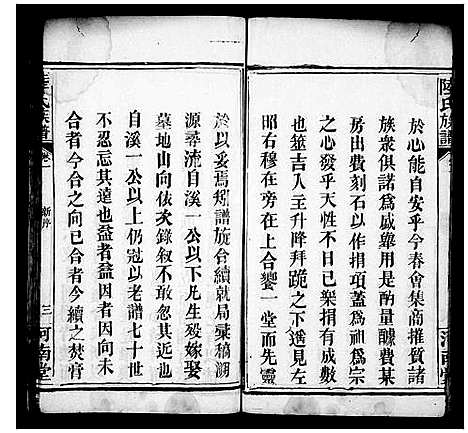 陸氏族譜
於心能自安乎今春會集商推質諸
族衆俱諾爲盛舉用是酌量醵費某
房出費刻石以作捐項蓋爲祖爲宗
之心發乎天性不日已槩捐有成數
也筮吉人主升降拜跪之下邁見左
昭右穆在旁在上合饗一堂而先靈
於以妥焉矧譜旋合續就局藁稿溯
源尋流自溪一公以下凡生殁嫁娶
墓地山向依次錄叙不敢忽其近也
自溪一公以上仍冠以老譜七十世
不忍忘其遠也益者益因者因向未
合者今合之向已合者今續之焚膏
氏族譜
卷一
新序
三
河南堂